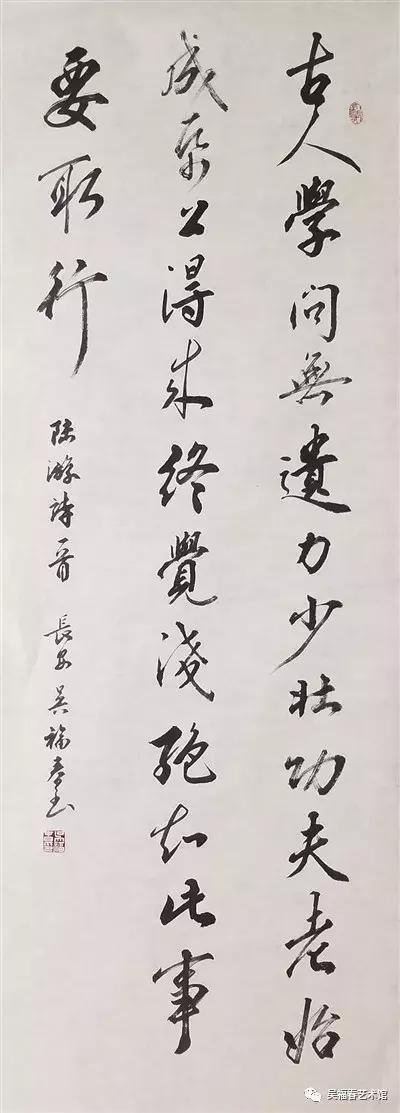 古人學問無遺力少壯功夫老始
成帋上得來終覺淺絕知此事
要躬行
陸游詩一首 長安吳福春書
吴福春艺术馆